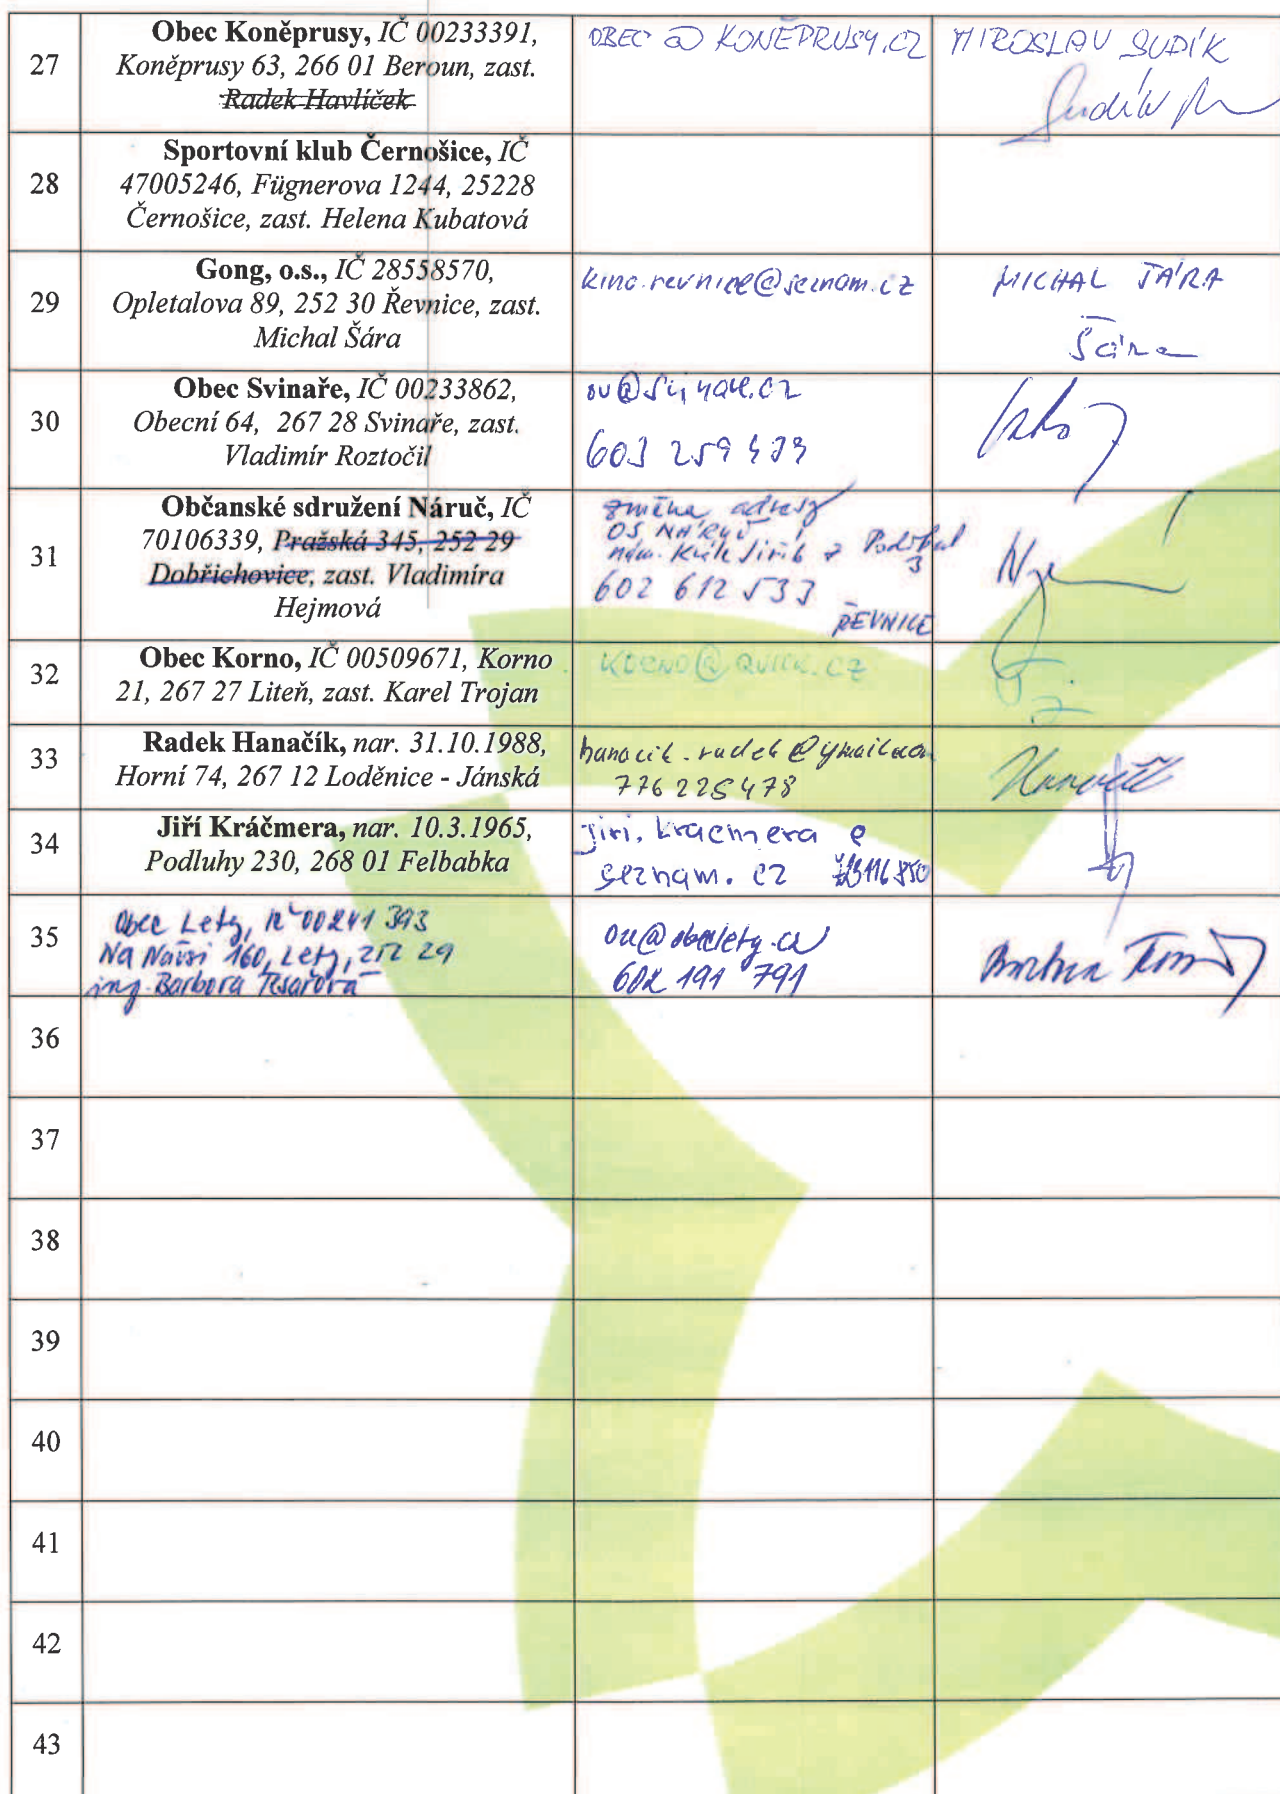 27
Obec Koněprusy, IČ 00233391,
Koněprusy 63, 266 01 Beroun, zast.
Radek Havlíček
OBEC @ KONĚPRUSY.CZ
MIROSLAV SUDÍK
28
Sportovní klub Černošice, IČ
47005246, Fügnerova 1244, 25228
Černošice, zast. Helena Kubatová
29
Gong, o.s., IČ 28558570,
Opletalova 89, 252 30 Řevnice, zast.
Michal Šára
kino.revnice@seznam.cz
MICHAL ŠÁRA
Šára
30
Obec Svinaře, IČ 00233862,
Obecní 64, 267 28 Svinaře, zast.
Vladimír Roztočil
ou@svinare.cz
603 259
31
Občanské sdružení Náruč, IČ
70106339, Pražská 345, 252 29
Dobřichovice, zast. Vladimíra
Hejmová
změna adresy
OS NÁRUČ
nám. Krále Jiřího z Poděbrad
3
602 612 533
ŘEVNICE
32
Obec Korno, IČ 00509671, Korno
21, 267 27 Liteň, zast. Karel Trojan
KORNO@QUICK.CZ
33
Radek Hanačík, nar. 31.10.1988,
Horní 74, 267 12 Loděnice - Jánská
hanacik.radek@ymail.com
776 225 478
Hanačík
34
Jiří Kráčmera, nar. 10.3.1965,
Podluhy 230, 268 01 Felbabka
jiri.kracmera @
seznam.cz
35
Obec Lety, IČ 00241 393
Na Návsi 160, Lety, 252 29
ing. Barbora Tesařová
ou@obeclety.cz
602 191 791
36
37
38
39
40
41
42
43